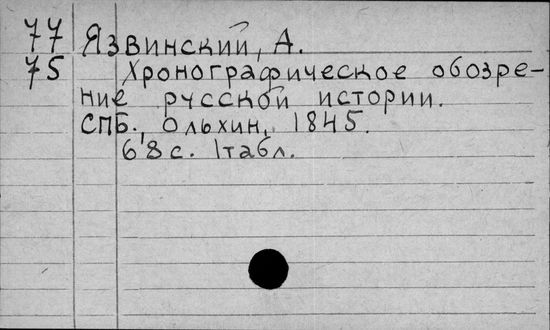 77 Язвинский, А.
75 Хронографическое обозре-
ние русской истории.
СПБ., Ольхин, 1845.
68 с. 1 табл.